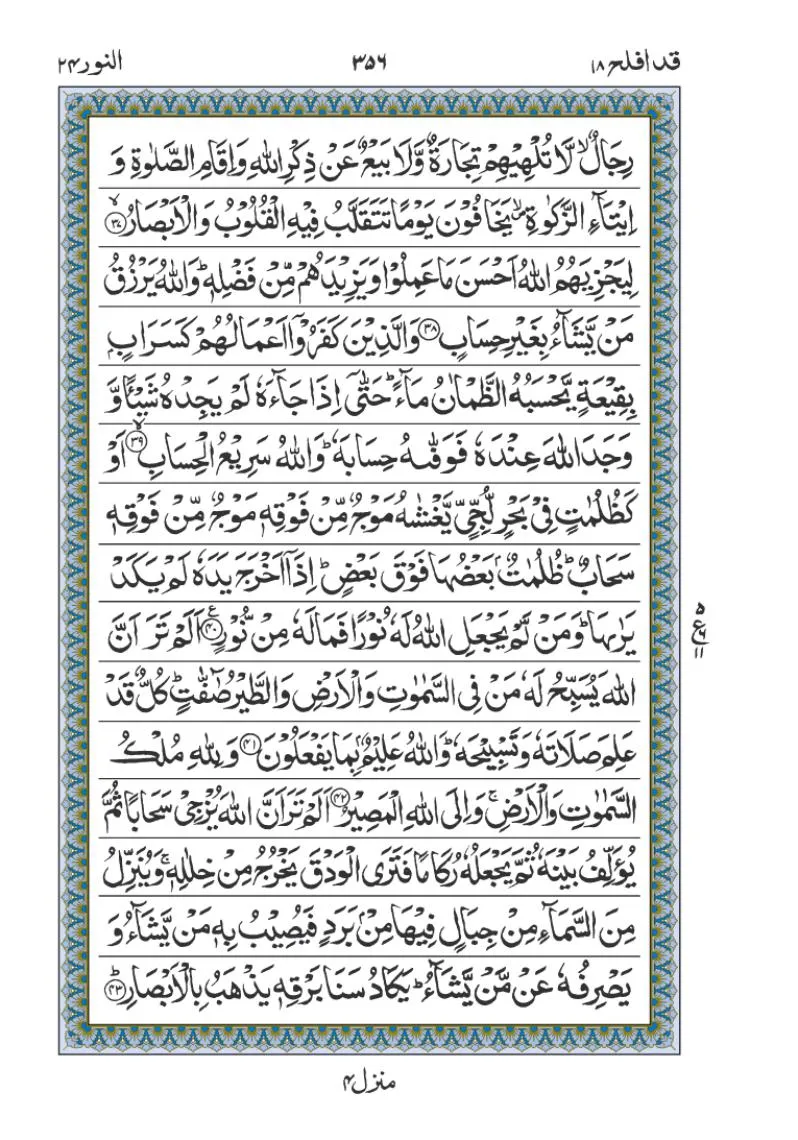 قد افلح ۱۸
۳۵۶
النور ۲۴
رِجَالٌ ۙ لَّا تُلْهِيْهِمْ تِجَارَةٌ وَّلَا بَيْعٌ عَنْ ذِكْرِ اللّٰهِ وَاِقَامِ الصَّلٰوةِ وَ
اِيْتَآءِ الزَّكٰوةِ ۙ يَخَافُوْنَ يَوْمًا تَتَقَلَّبُ فِيْهِ الْقُلُوْبُ وَالْاَبْصَارُ ۙ ﴿۳۷﴾
لِيَجْزِيَهُمُ اللّٰهُ اَحْسَنَ مَا عَمِلُوْا وَيَزِيْدَهُمْ مِّنْ فَضْلِهٖ ؕ وَاللّٰهُ يَرْزُقُ
مَنْ يَّشَآءُ بِغَيْرِ حِسَابٍ ﴿۳۸﴾ وَالَّذِيْنَ كَفَرُوْۤا اَعْمَالُهُمْ كَسَرَابٍۭ
بِقِيْعَةٍ يَّحْسَبُهُ الظَّمْاٰنُ مَآءً ؕ حَتّٰۤى اِذَا جَآءَهٗ لَمْ يَجِدْهُ شَيْـًٔا وَّ
وَجَدَ اللّٰهَ عِنْدَهٗ فَوَفّٰىهُ حِسَابَهٗ ؕ وَاللّٰهُ سَرِيْعُ الْحِسَابِ ۙ ﴿۳۹﴾ اَوْ
كَظُلُمٰتٍ فِيْ بَحْرٍ لُّجِّيٍّ يَّغْشٰىهُ مَوْجٌ مِّنْ فَوْقِهٖ مَوْجٌ مِّنْ فَوْقِهٖ
سَحَابٌ ؕ ظُلُمٰتٌۢ بَعْضُهَا فَوْقَ بَعْضٍ ؕ اِذَاۤ اَخْرَجَ يَدَهٗ لَمْ يَكَدْ
يَرٰىهَا ؕ وَمَنْ لَّمْ يَجْعَلِ اللّٰهُ لَهٗ نُوْرًا فَمَا لَهٗ مِنْ نُّوْرٍ ﴿۴۰﴾ اَلَمْ تَرَ اَنَّ
اللّٰهَ يُسَبِّحُ لَهٗ مَنْ فِى السَّمٰوٰتِ وَالْاَرْضِ وَالطَّيْرُ صٰٓفّٰتٍ ؕ كُلٌّ قَدْ
عَلِمَ صَلَاتَهٗ وَتَسْبِيْحَهٗ ؕ وَاللّٰهُ عَلِيْمٌۢ بِمَا يَفْعَلُوْنَ ﴿۴۱﴾ وَلِلّٰهِ مُلْكُ
السَّمٰوٰتِ وَالْاَرْضِ ۚ وَاِلَى اللّٰهِ الْمَصِيْرُ ﴿۴۲﴾ اَلَمْ تَرَ اَنَّ اللّٰهَ يُزْجِيْ سَحَابًا ثُمَّ
يُؤَلِّفُ بَيْنَهٗ ثُمَّ يَجْعَلُهٗ رُكَامًا فَتَرَى الْوَدْقَ يَخْرُجُ مِنْ خِلٰلِهٖ ۚ وَيُنَزِّلُ
مِنَ السَّمَآءِ مِنْ جِبَالٍ فِيْهَا مِنْۢ بَرَدٍ فَيُصِيْبُ بِهٖ مَنْ يَّشَآءُ وَ
يَصْرِفُهٗ عَنْ مَّنْ يَّشَآءُ ؕ يَكَادُ سَنَا بَرْقِهٖ يَذْهَبُ بِالْاَبْصَارِ ؕ ﴿۴۳﴾
۵
ع ۶
۱۱
منزل ۴